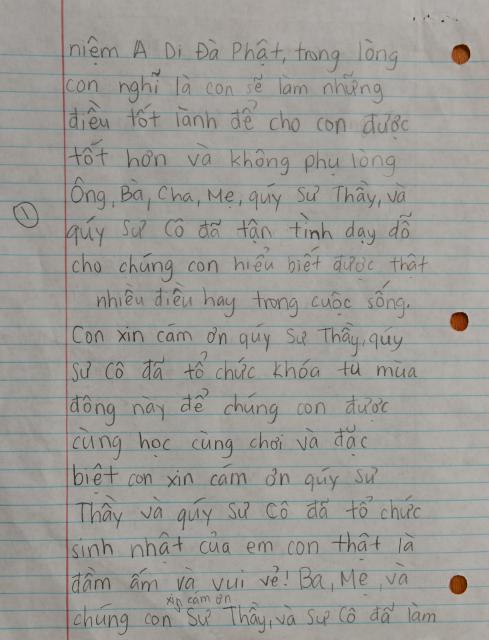 niệm A Di Đà Phật, trong lòng
con nghĩ là con sẽ làm những
điều tốt lành để cho con được
tốt hơn và không phụ lòng
Ông, Bà, Cha, Mẹ, quý Sư Thầy, và
① quý Sư Cô đã tận tình dạy dỗ
cho chúng con hiểu biết được thật
nhiều điều hay trong cuộc sống.
Con xin cám ơn quý Sư Thầy, quý
Sư Cô đã tổ chức khóa tu mùa
đông này để chúng con được
cùng học cùng chơi và đặc
biệt con xin cám ơn quý Sư
Thầy và quý Sư Cô đã tổ chức
sinh nhật của em con thật là
đầm ấm và vui vẻ! Ba, Mẹ, và
xin cám ơn
chúng con Sư Thầy, và Sư Cô đã làm